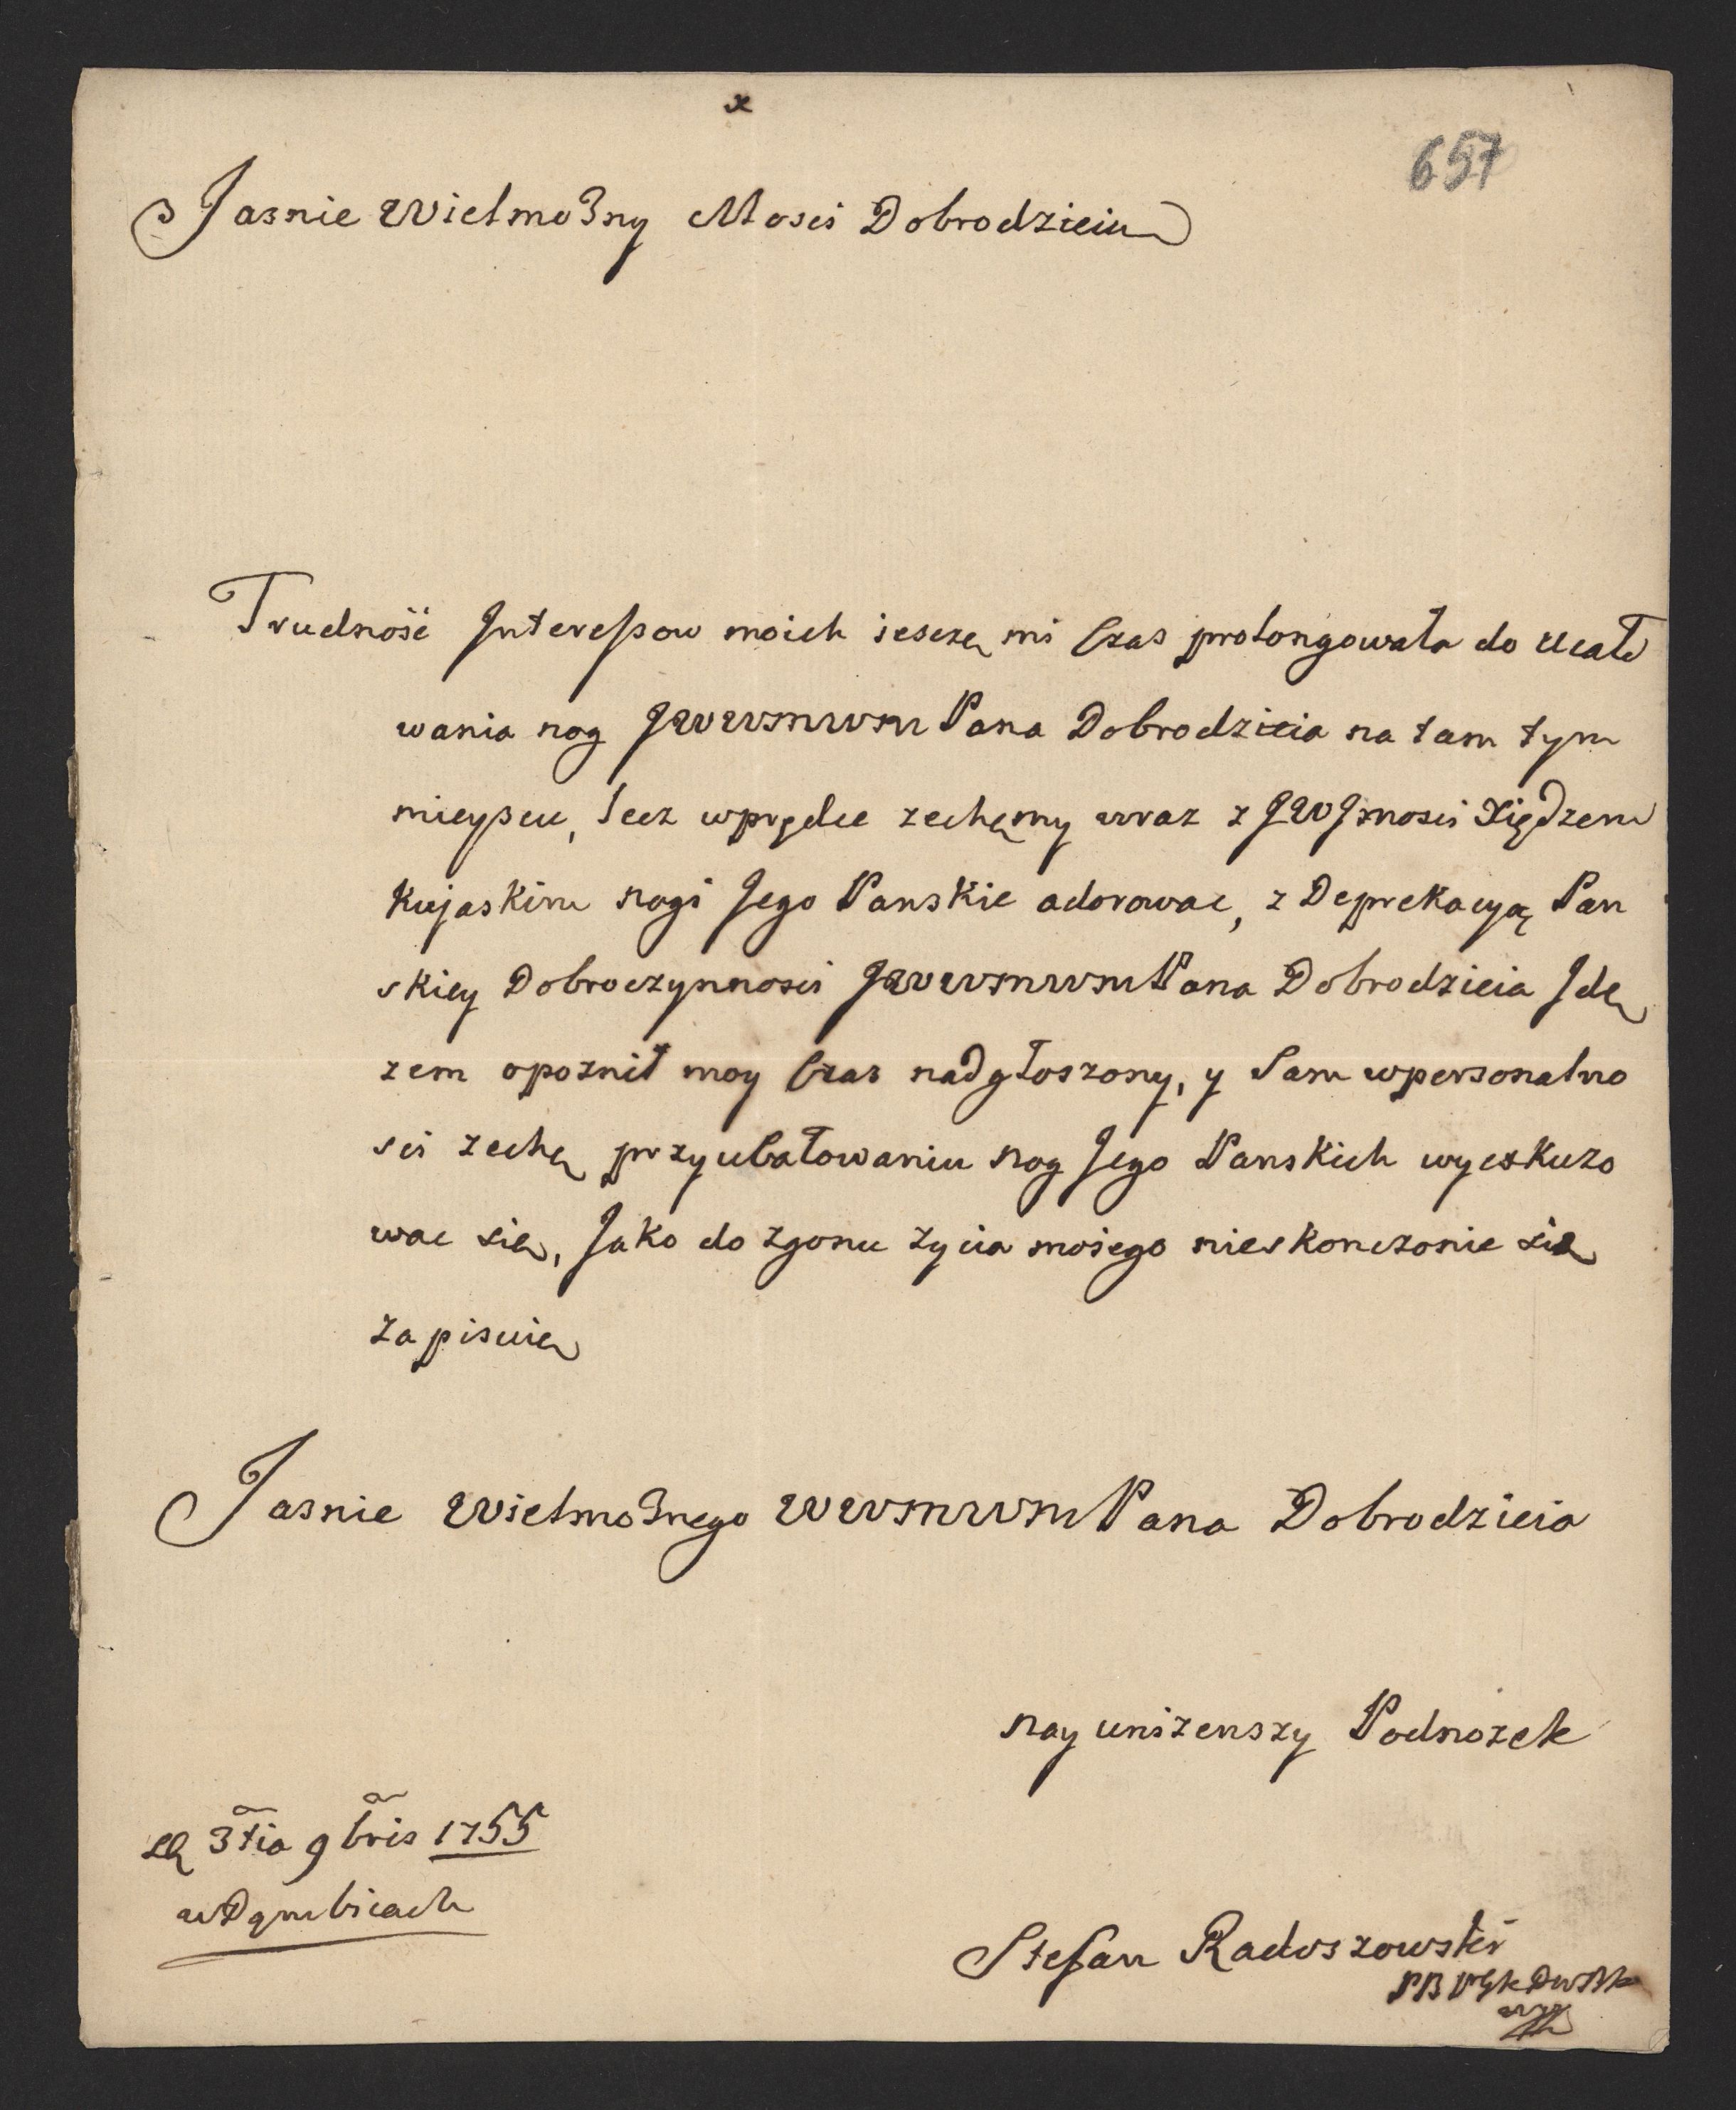 x
657
Jasnie Wielmozny Mosci Dobrodzieiu
Trudnosć Interessow moich ieszczę mi Czas prolongowała do ucało
wania nog JWWMMWM Pana Dobrodzieia na tam tym
mieyscu, lecz wprędce zechęmy wraz z JWJmosci Xiędzem
Kujaskim nogi Jego Panskie adorowac, z Deprekacyą Pan
skiey Dobroczynnosci JWWMMWMPana Dobrodzieia Idę
zem opoznił moy Czas nadgłoszony, y Sam wpersonalno
sci zechę przyucałowaniu nog Jego Panskich wyexkuzo
wac się, Jako do zgonu zycia mojego nieskonczonie się
zapisuię
Jasnie Wielmoznego WWMMWMPana Dobrodzieia
nay unizenszy Podnozek
3tia 9bris 1755
Stefan Raduszowski